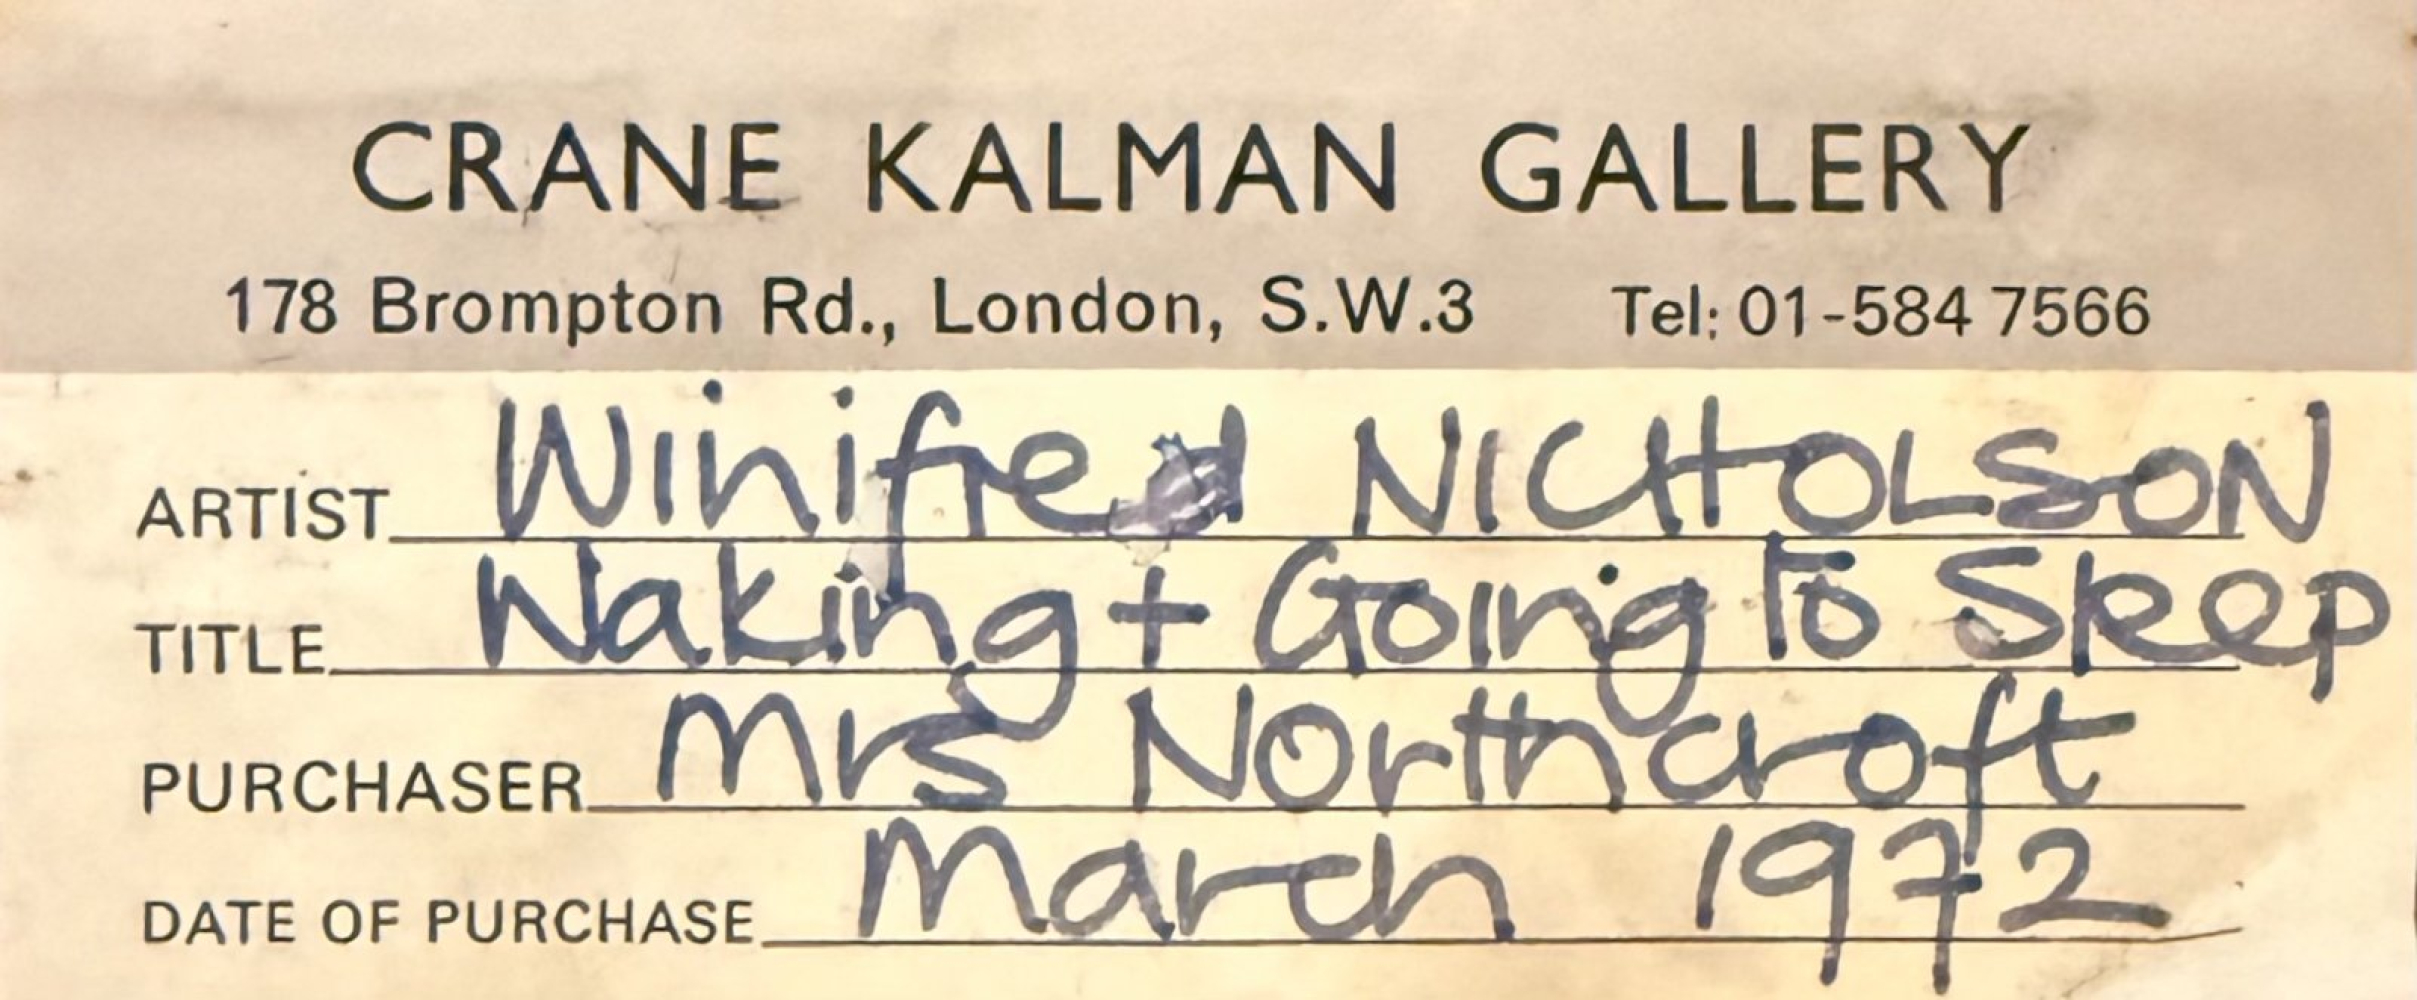 CRANE KALMAN GALLERY
178 Brompton Rd., London, S.W.3 Tel: 01-584 7566
ARTIST Winifred NICHOLSON
TITLE Waking + Going to Sleep
PURCHASER Mrs Northcroft
DATE OF PURCHASE March 1972